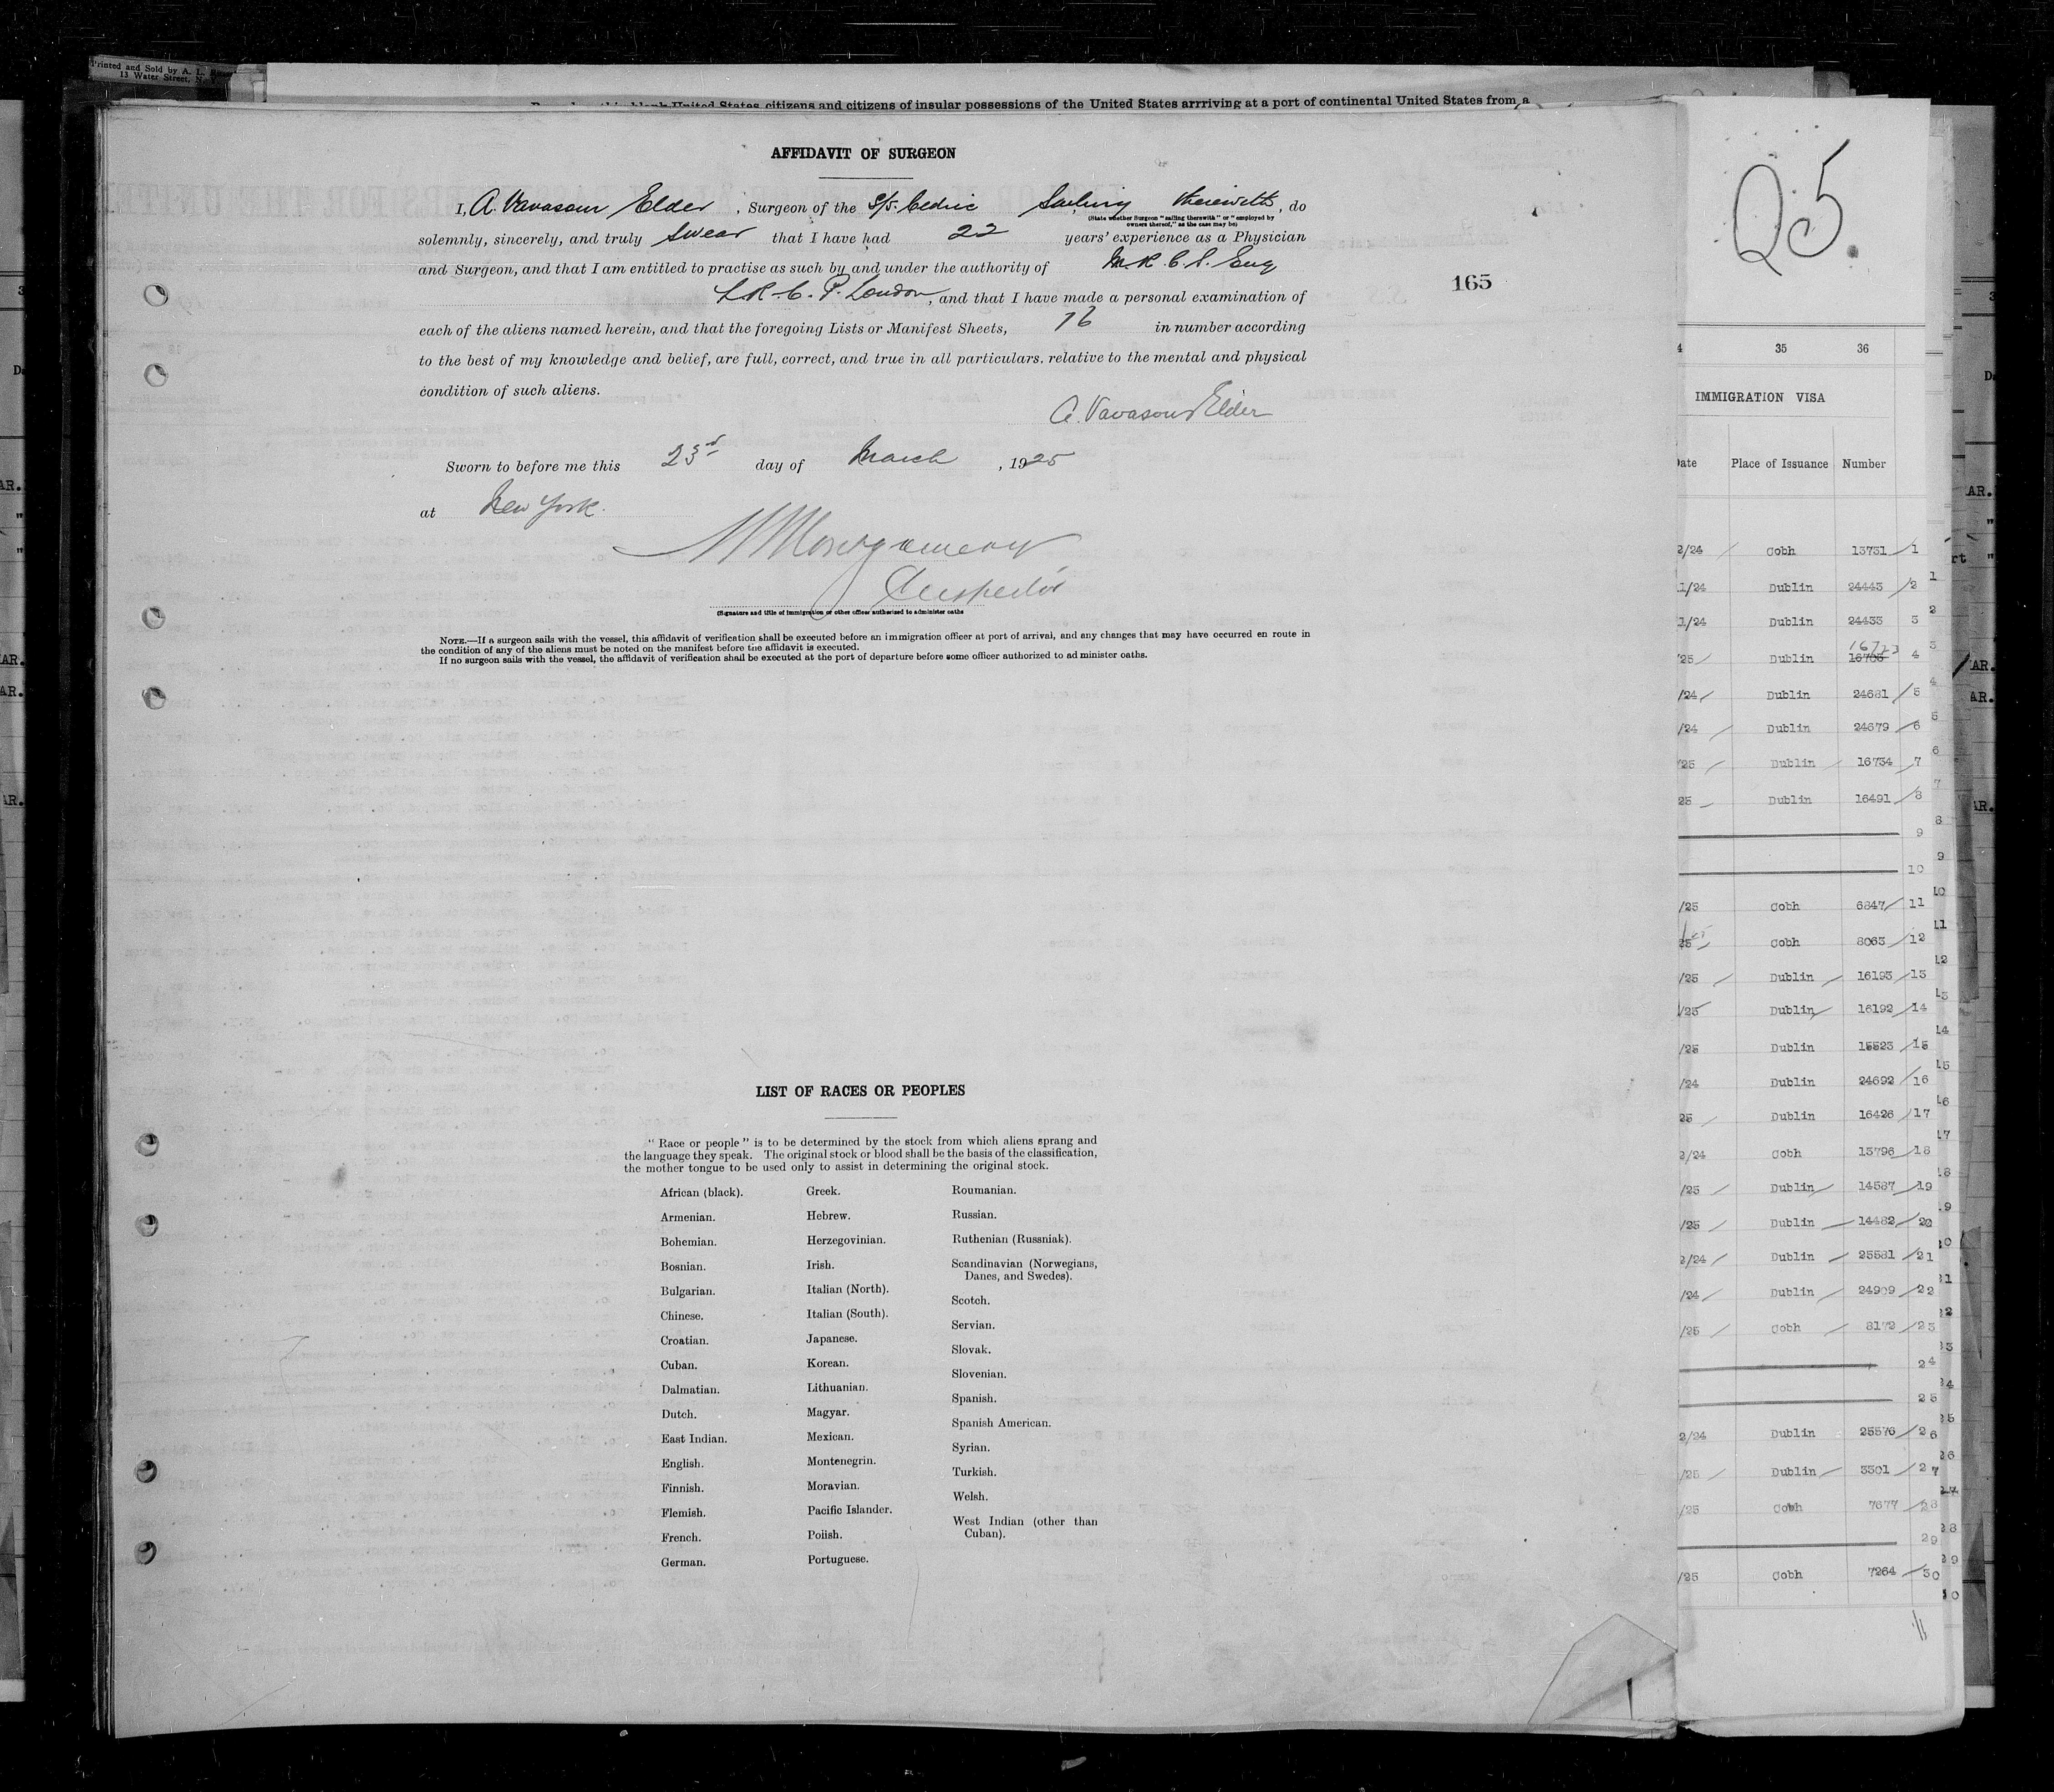 Printed and Sold by A. L.
13 Water Street, N. Y.
United States citizens and citizens of insular possessions of the United States arrriving at a port of continental United States from a
AFFIDAVIT OF SURGEON
I, A. Vavasour Elder, Surgeon of the S/S. Cedric Sailing therewith, do
(State whether Surgeon "sailing therewith" or "employed by
owners thereof," as the case may be)
solemnly, sincerely, and truly swear that I have had 22 years' experience as a Physician
and Surgeon, and that I am entitled to practise as such by and under the authority of M.R.C.S. Eng
L.R.C.P. London, and that I have made a personal examination of
each of the aliens named herein, and that the foregoing Lists or Manifest Sheets, 16 in number according
to the best of my knowledge and belief, are full, correct, and true in all particulars. relative to the mental and physical
condition of such aliens.
A. Vavasour Elder
Sworn to before me this 23rd day of March, 1925
at New York.
Montgomery
Inspector
(Signature and title of immigration or other officer authorized to administer oaths
NOTE.—If a surgeon sails with the vessel, this affidavit of verification shall be executed before an immigration officer at port of arrival, and any changes that may have occurred en route in
the condition of any of the aliens must be noted on the manifest before the affidavit is executed.
If no surgeon sails with the vessel, the affidavit of verification shall be executed at the port of departure before some officer authorized to administer oaths.
165
LIST OF RACES OR PEOPLES
"Race or people" is to be determined by the stock from which aliens sprang and
the language they speak. The original stock or blood shall be the basis of the classification,
the mother tongue to be used only to assist in determining the original stock.
African (black).
Armenian.
Bohemian.
Bosnian.
Bulgarian.
Chinese.
Croatian.
Cuban.
Dalmatian.
Dutch.
East Indian.
English.
Finnish.
Flemish.
French.
German.
Greek.
Hebrew.
Herzegovinian.
Irish.
Italian (North).
Italian (South).
Japanese.
Korean.
Lithuanian.
Magyar.
Mexican.
Montenegrin.
Moravian.
Pacific Islander.
Polish.
Portuguese.
Roumanian.
Russian.
Ruthenian (Russniak).
Scandinavian (Norwegians,
Danes, and Swedes).
Scotch.
Servian.
Slovak.
Slovenian.
Spanish.
Spanish American.
Syrian.
Turkish.
Welsh.
West Indian (other than
Cuban).
35 36
IMMIGRATION VISA
Place of Issuance Number
2/24 Cobh 13731 1
1/24 Dublin 24443 2
1/24 Dublin 24433 3
16723
/25 Dublin 16705 4
/24 Dublin 24681 5
/24 Dublin 24679 6
/25 Dublin 16734 7
25 Dublin 16491 8
9
10
/25 Cobh 6847 11
25 Cobh 8063 12
/25 Dublin 16193 13
/25 Dublin 16192 14
/25 Dublin 15523 15
/24 Dublin 24692 16
25 Dublin 16426 17
2/24 Cobh 13796 18
/25 Dublin 14587 19
/25 Dublin 14482 20
2/24 Dublin 25581 21
/24 Dublin 24909 22
/25 Cobh 8172 23
24
25
2/24 Dublin 25576 26
/25 Dublin 3301 27
/25 Cobh 7677 28
29
/25 Cobh 7264 30